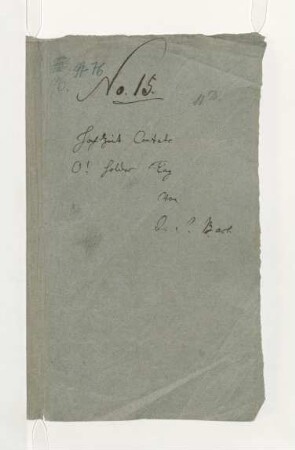 No. 15.
Hochzeit Cantate
O! holder Tag
von
J. S. Bach